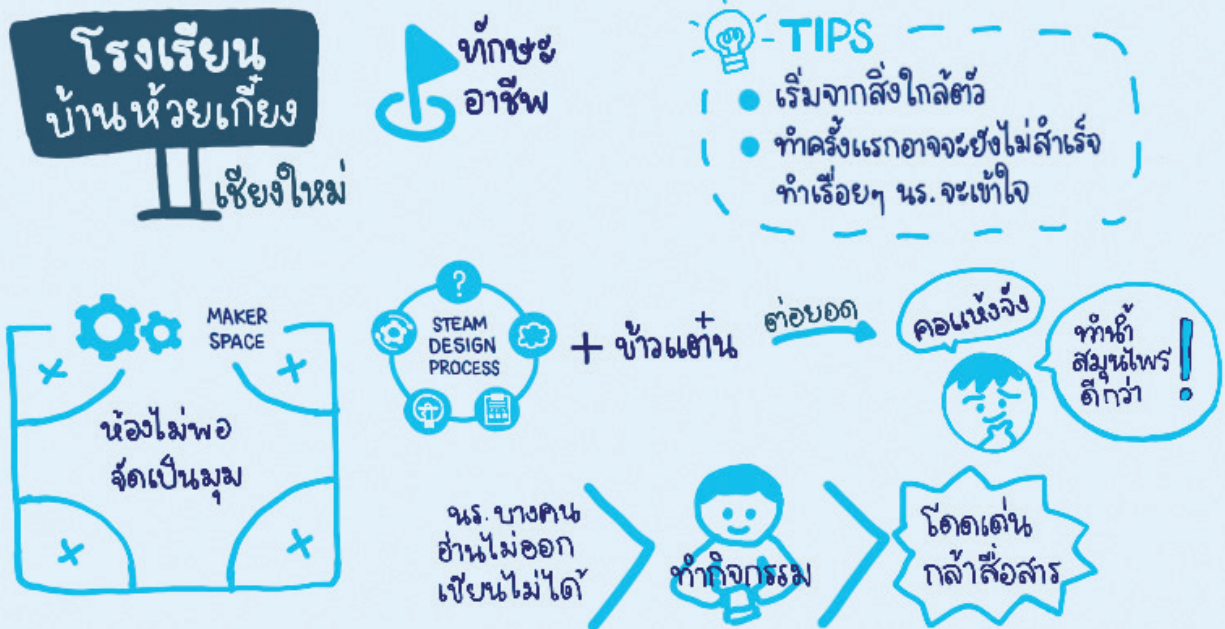 โรงเรียน
บ้านห้วยเกี๋ยง
เชียงใหม่
ทักษะ
อาชีพ
TIPS
เริ่มจากสิ่งใกล้ตัว
ทำครั้งแรกอาจจะยังไม่สำเร็จ
ทำเรื่อยๆ นร. จะเข้าใจ
MAKER
SPACE
ห้องไม่พอ
จัดเป็นมุม
?
STEAM
DESIGN
PROCESS
+ ข้าวแต๋น
ต่อยอด
คอแห้งจัง
ทำน้ำ
สมุนไพร
ดีกว่า !
นร. บางคน
อ่านไม่ออก
เขียนไม่ได้
ทำกิจกรรม
โดดเด่น
กล้าสื่อสาร